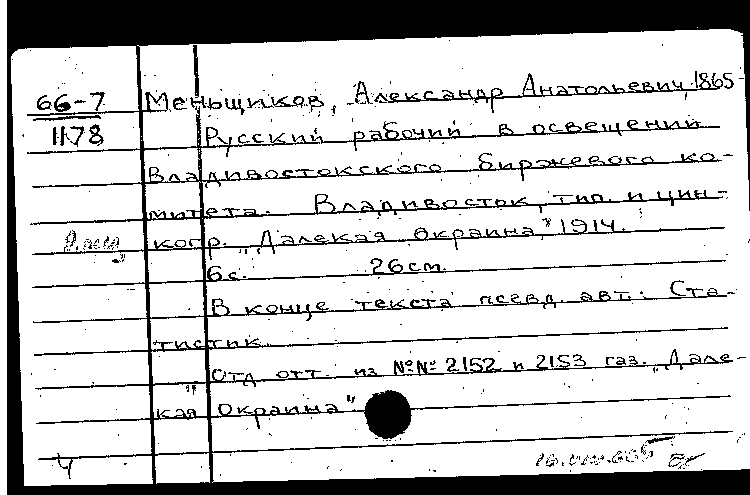 66-7 Меньщиков, Александр Анатольевич, 1865-
1178 Русский рабочий в освещений
Владивостокского биржевого ко-
митета. Владивосток, тип. и цин-
когр. „Далекая окраина," 1914.
6с. 26см.
В конце текста псевд. авт.: Ста-
тистик.
Отд. отт. из №№ 2152 и 2153 газ. „Дале-
кая Окраина"
Ч